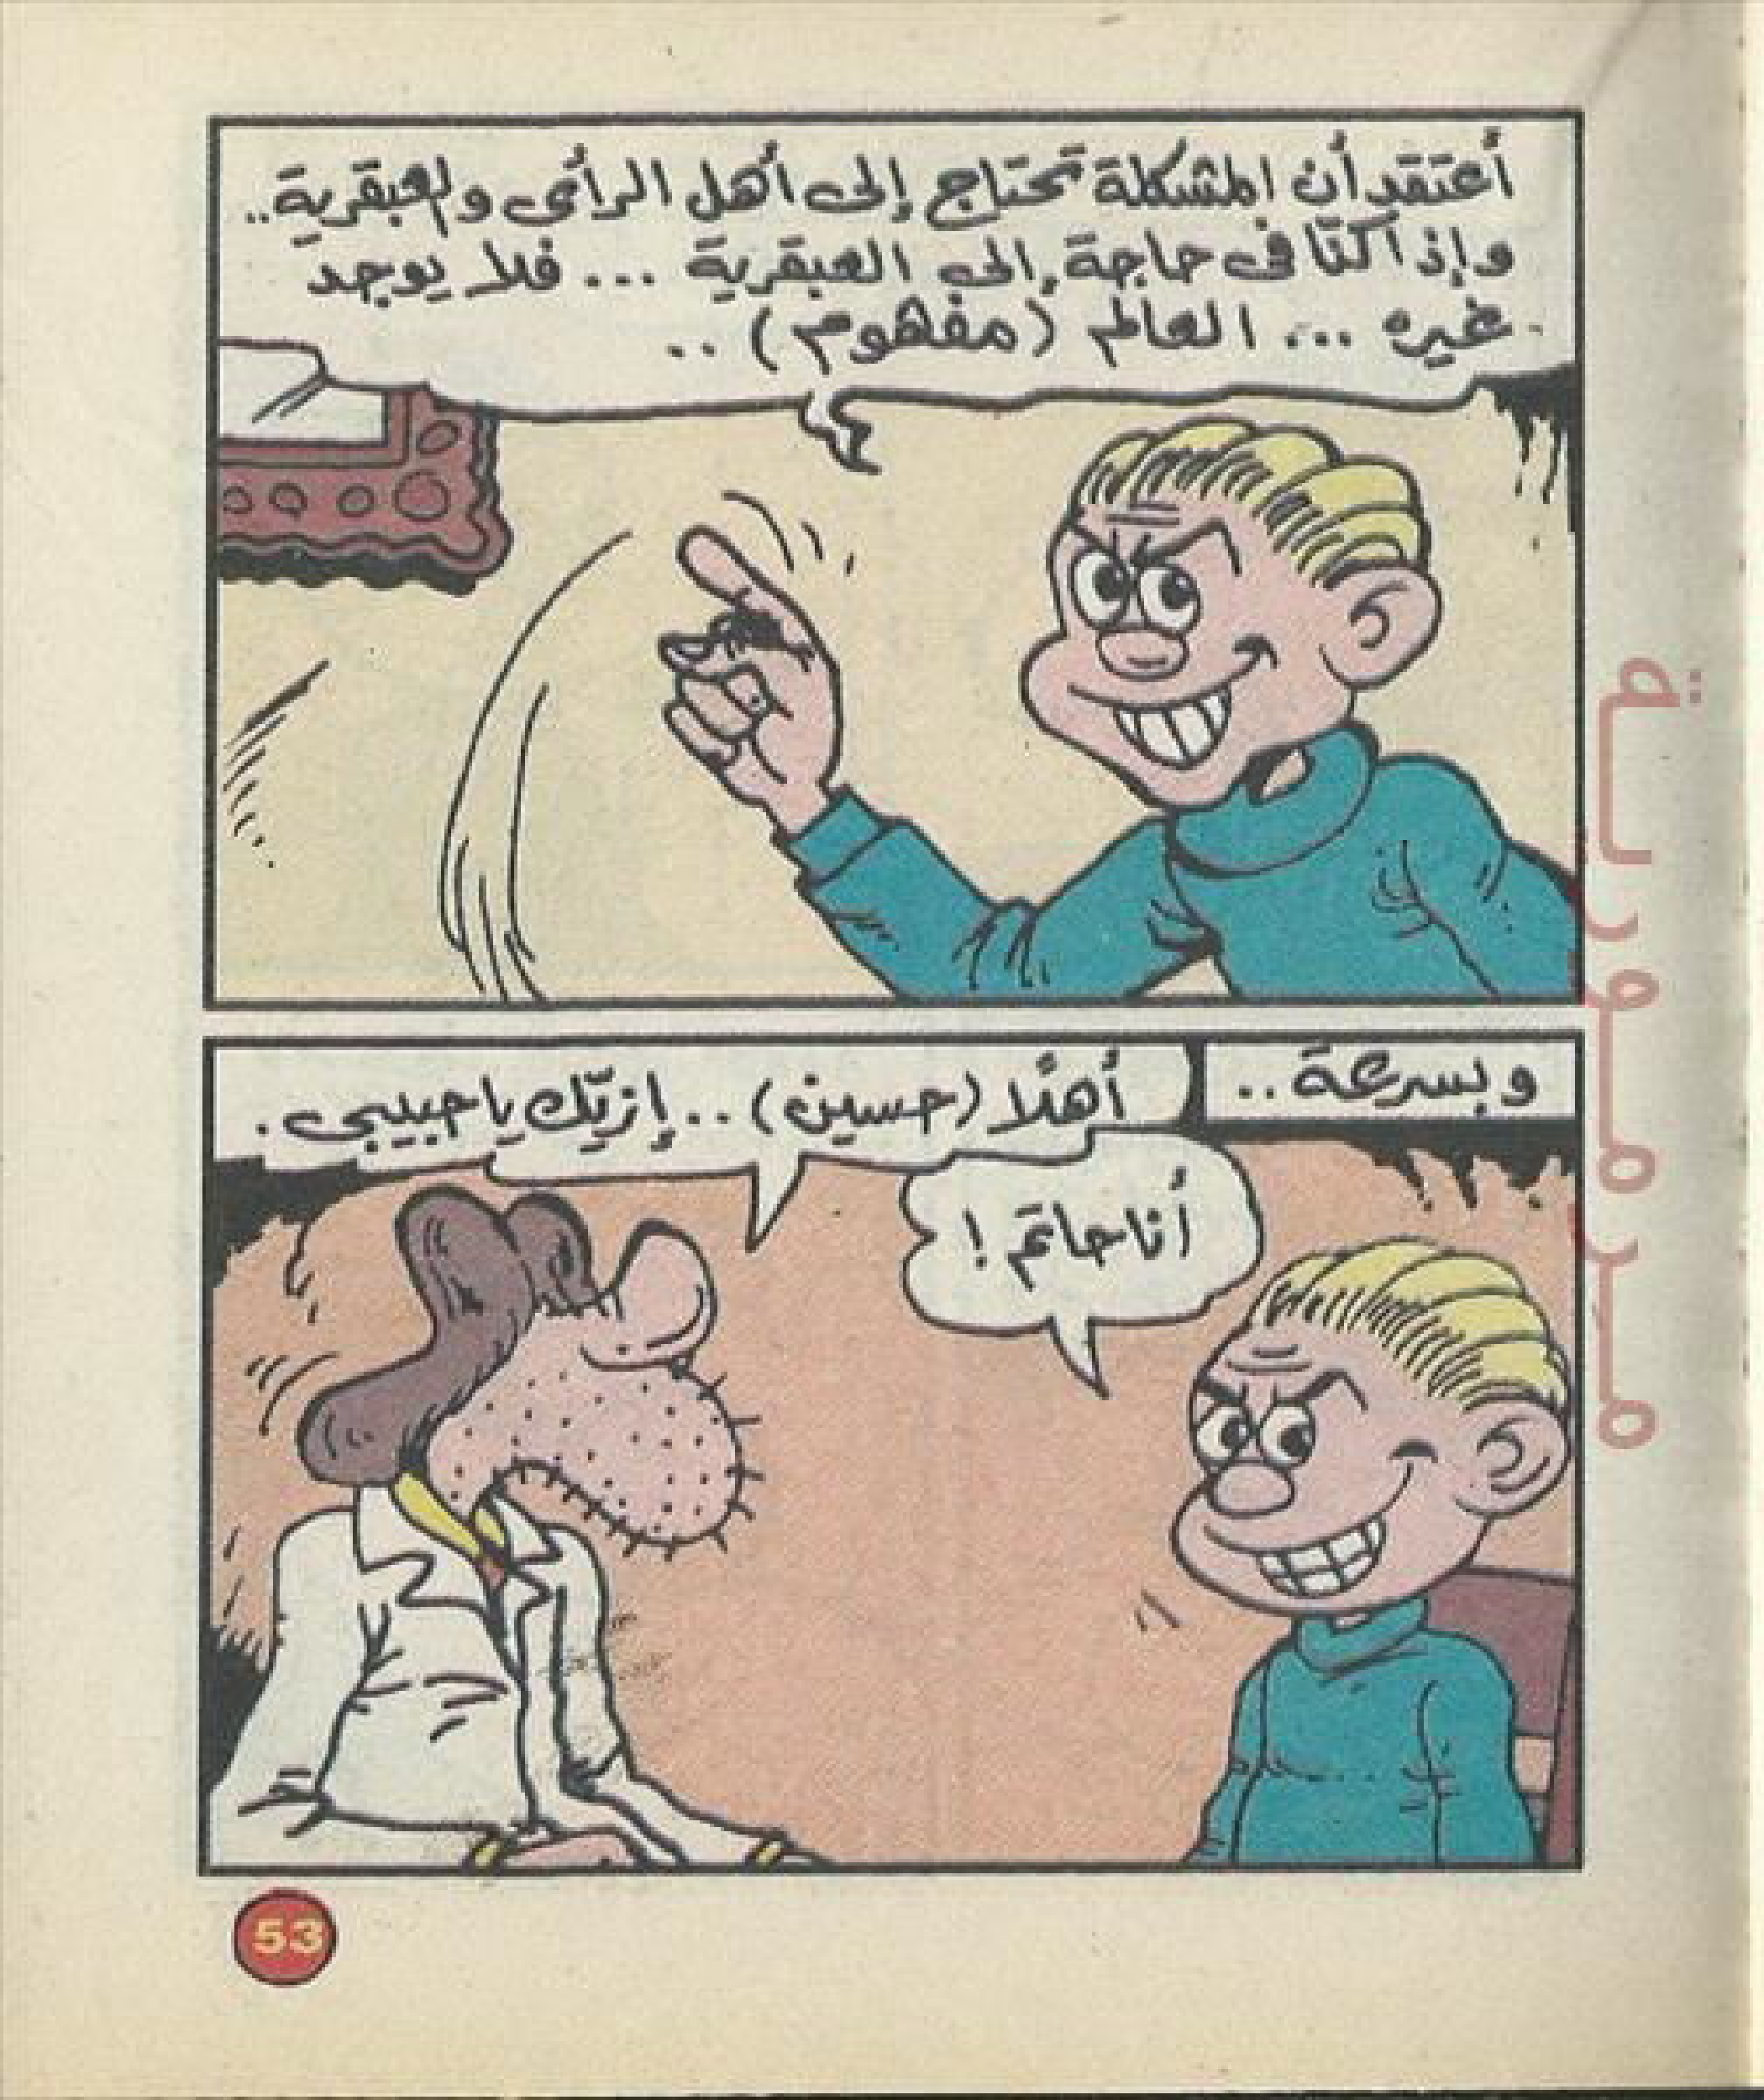 أعتقد أن المشكلة تحتاج إلى أهل الرأى والعبقرية..
وإذا كنّا فى حاجة إلى العبقرية ... فلا يوجد
غيره ... العالم (مفهوم) ..
وبسرعة..
أهلًا (حسين) .. إزيّك يا حبيبى.
أنا حاتم !
53